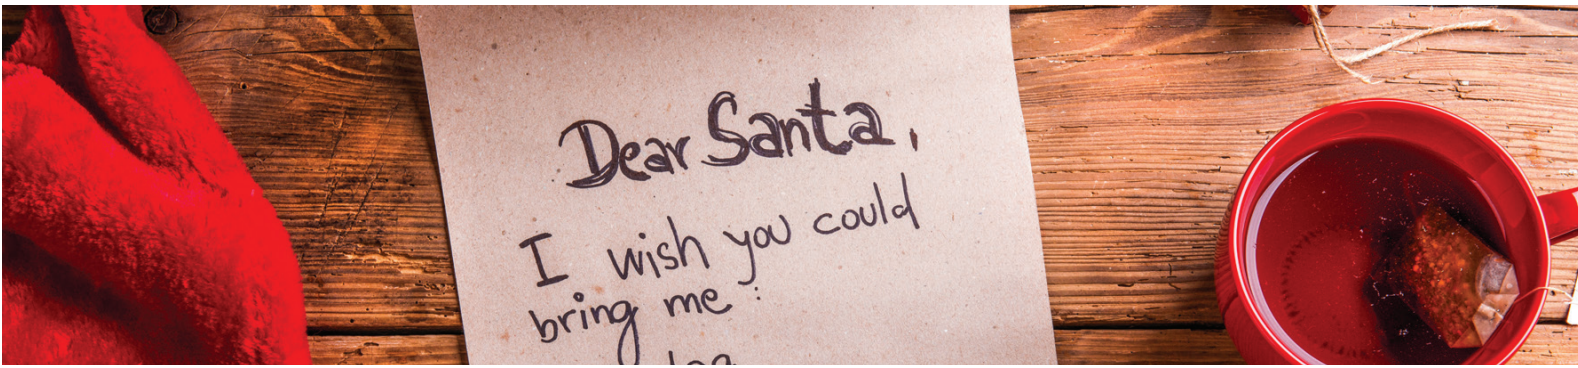 Dear Santa,
I wish you could
bring me :